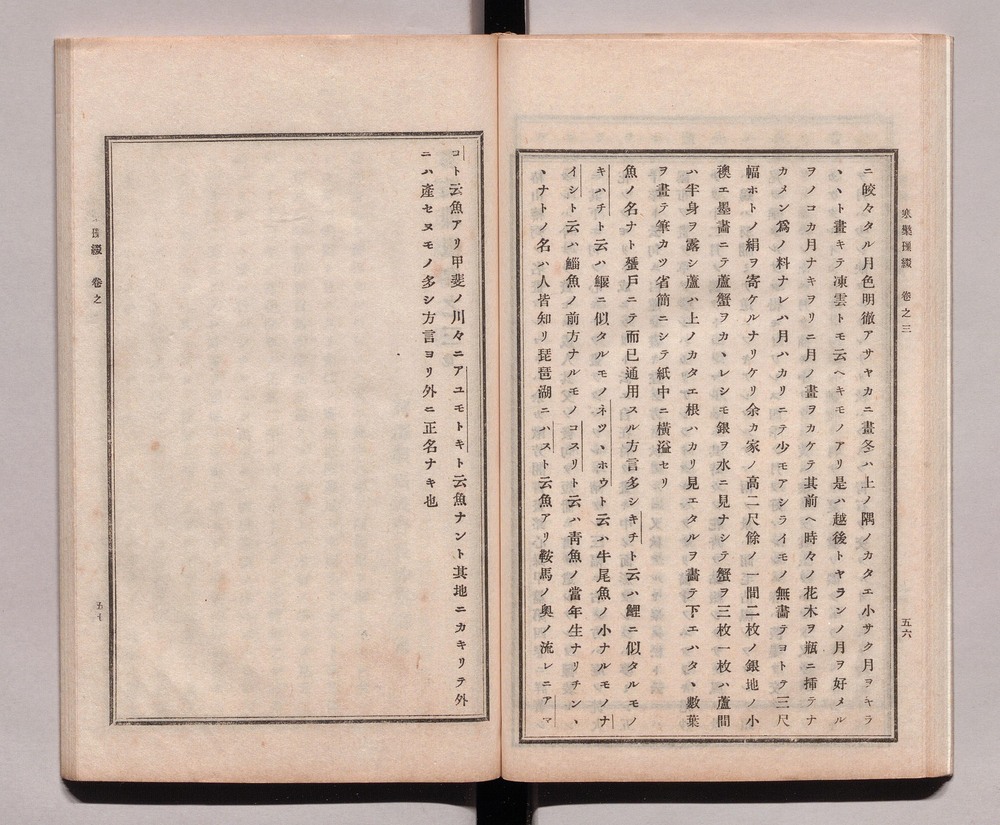 ニ皎々タル月色明徹アサヤカニ畫冬ハ上ノ隅ノカタエ小サク月ヲキラ
ヽヽト畫キテ凍雲トモ云ヘキモノアリ是ハ越後トヤランノ月ヲ好メル
ヲノコカ月ナキヲリニ月ノ畫ヲカケテ其前ヘ時々ノ花木ヲ瓶ニ挿テナ
カメン爲ノ料ナレハ月ハカリニテ少モアシライモノ無畵テヨトテ三尺
幅ホトノ絹ヲ寄ケルナリケリ余カ家ノ高二尺餘ノ一間二枚ノ銀地ノ小
襖エ墨畵ニテ蘆蟹ヲカヽレシモ銀ヲ水ニ見ナシテ蟹ヲ三枚一枚ハ蘆間
ハ半身ヲ露シ蘆ハ上ノカタエ根ハカリ見エタルヲ畵テ下エハタヽ數葉
ヲ畫テ筆カツ省簡ニシテ紙中ニ橫溢セリ
魚ノ名ナト蜑戶ニテ而已通用スル方言多シキチト云ハ鯉ニ似タルモノ
キハチト云ハ鰋ニ似タルモノネツヽホウト云ハ牛尾魚ノ小ナルモノナ
イシト云ハ鯔魚ノ前方ナルモノコスリト云ハ靑魚ノ當年生ナリチンヽ
ヽナトノ名ハ人皆知リ琵琶湖ニハスト云魚アリ鞍馬ノ奧ノ流レニアマ
卷之三
五六
コト云魚アリ甲斐ノ川々ニアユモトキト云魚ナント其地ニカキリテ外
ニハ產セヌモノ多シ方言ヨリ外ニ正名ナキ也
綴 卷之